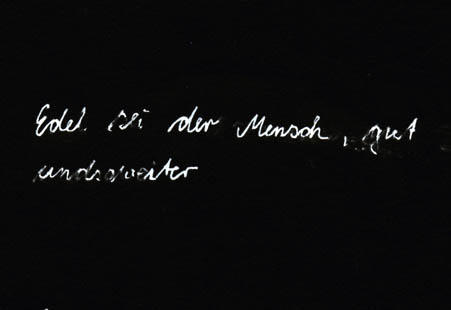 Edel sei der Mensch, gut
und so weiter